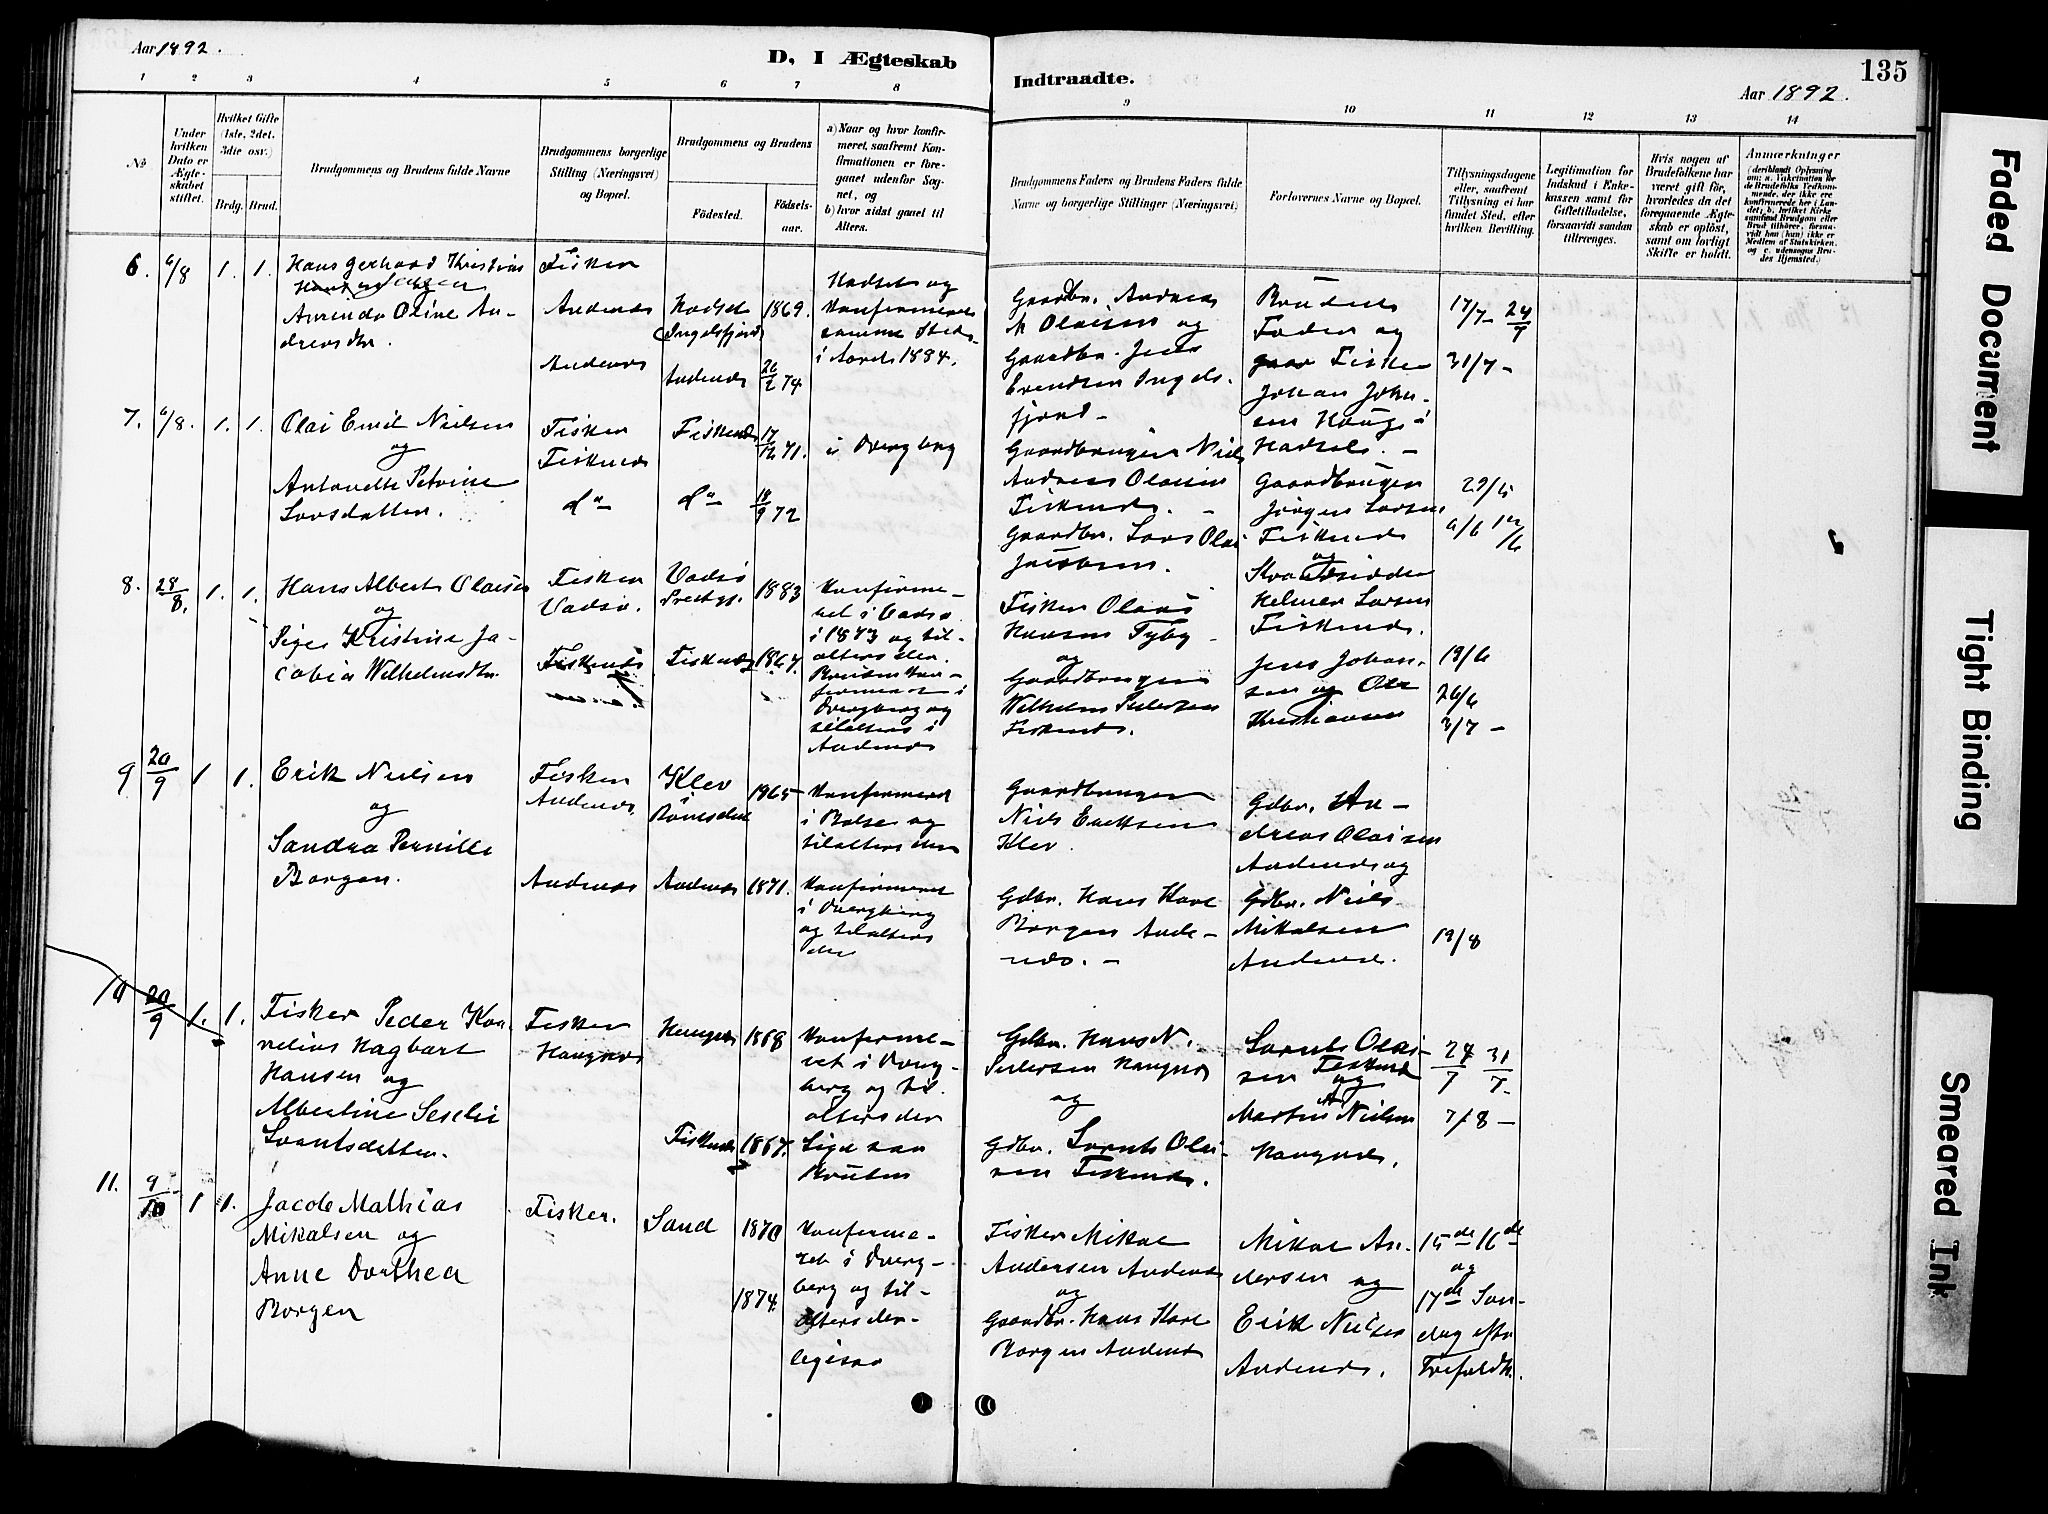 Aar 1892.
D, I Ægteskab
Indtraadte.
Aar 1892.
135
1 2 3 4 5 6 7 8
9 10 11 12 13 14
No
Under hvilken Dato er Ægteskabet stiftet.
Hvilket Gifte (1ste, 2det, 3die osv.)
Brdg. Brud.
Brudgommens og Brudens fulde Navne
Brudgommens borgerlige Stilling (Næringsvei) og Bopæl.
Brudgommens og Brudens
Fødested.
Fødsels-
aar.
a) Naar og hvor konfir-
meret, saafremt Kon-
firmationen er fore-
gaaet udenfor Sog-
net, og
b) hvor sidst gaaet til
Alters.
Brudgommens Faders og Brudens Faders fulde
Navne og borgerlige Stillinger (Næringsvei)
Forlovernes Navne og Bopæl.
Tillysningsdagene
eller, saafremt
Tillysning ei har
fundet Sted, efter
hvilken Bevilling.
Legitimation for
Indskud i Enke-
kassen samt for
Giftetilladelse,
forsaavidt saadan
tiltrænges.
Hvis nogen af
Brudefolkene har
været gift før,
hvorledes da det
foregaaende Ægte-
skab er opløst,
samt om lovligt
Skifte er holdt.
Anmærkninger
6. 6/8 1. 1.
Hans Gerhard Kristian
Jensen
Oline An-
dreasdtr.
Fisker
Andenæs
Andenæs
Hadsel
Ingelsfjord
Andenæs
1869.
20/2 74
Hadsel og
Konfirmeret
samme Sted
i Aaret 1884.
Gaardbr. Andreas
M Olaisen og
Gaardbr. Jens
Evendsen Ingels-
fjord -
Brudens
Fader og
Fisker
Johan John-
sen Haugs i
Hadsel. -
17/7 - 24/7
31/7 -
7. 6/8. 1. 1.
Olai Emil Nielsen
og
Antonette Petrine
Larsdatter.
Fisker
Fiskenæs
do
Fiskenæs
do
17/12 71.
18/9 72
i Dvergberg
Gaardbruger Niels
Andreas Olaisen
Fiskenæs. -
Gaardbr. Lars Olai
Jacobsen.
Gaardbruger
Jørgen Larsen
Fiskenæs
og
Helmer Larsen
Fiskenæs.
29/5
6/6 12/6
8. 28/8. 1. 1.
Hans Albert Olaisen
og
Kristine Ja-
cobia Wilhelmsdtr.
Fisker
Vadsø.
Fiskenæs
Vadsø
Prestgj.
Fiskenæs
1883
1867.
Konfirme-
ret i Vadsø
i 1873 og til-
alters der.
Bruden Kon-
firmeret i
Dvergberg og
tilalters i
Andenæs
Fisker Olaus
Hansen Tyby
og
Gaardbruger
Wilhelm Pedersen
Fiskenæs.
Jens Johan-
sen og Ole
Kristiansen
19/6
26/6
3/7 -
9 20/9 1 1.
Erik Nielsen
og
Sandra Pernille
Borgen.
Fisker
Andenæs.
Andenæs
Klev
Romsdal
Andenæs
1965 -
1871.
Konfirmeret
i Bolsø og
tilalters der
Konfirmeret
i Dvergberg
og tilalters
der
Gaardbruger
Niels Eriksen
Klev.
Gdbr. Hans Karl
Borgen Ande-
næs. -
Gdbr. An-
dreas Olaisen
Andenæs og
Gdbr. Niels
Mikalsen
Andenæs.
19/8
10 20/9 1. 1.
Fisker Peder Kor-
nelius Hagbart
Hansen og
Albertine Seselie
Lorntsdatter.
Fisker
Haugnæs
Haugnæs
Fiskenæs
1868
1867.
Konfirme-
ret i Dverg-
berg og til-
alters der
Lige saa
Bruden
Gdbr. Hans N.
Pedersen Haugnæs
og
Gdbr. Lornts Olai-
sen Fiskenæs.
Lornts Olai-
sen Fiskenæs
og
Martin Nielsen
Haugnæs.
24/7 31/7 -
7/8 -
11. 9/10 1 1.
Jacob Mathias
Mikalsen og
Anne Dorthea
Borgen
Fisker.
Sand
1870
1874.
Konfirme-
ret i Dverg-
berg og til-
alters der-
ligesaa
Fisker Mikal
Andersen Andenæs
og
Gaardbr. Hans Karl
Borgen Andenæs
Mikal An-
dersen og
Erik Nielsen
Andenæs.
15de 16de
og
17de Søn-
dag eftr
Trefoldh.
Faded Document
Tight Binding
Smeared Ink